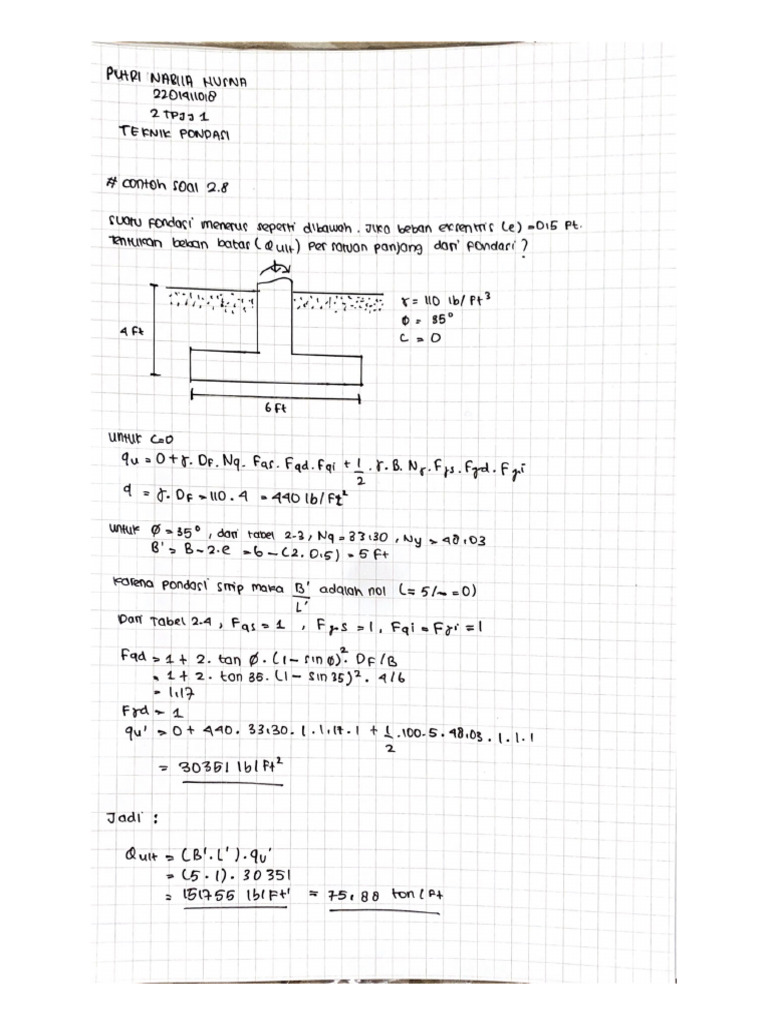 PUTRI NABILA HUSNA
2201411018
2 TPJJ 1
TEKNIK PONDASI
# contoh soal 2.8
suatu fondasi menerus seperti dibawah. Jika beban eksentris (e) = 0,5 ft.
Tentukan beban batas (Qult) per satuan panjang dari fondasi?
γ = 110 lb/ft³
Ø = 35°
C = 0
4 ft
6 ft
untuk C=0
qu = 0 + γ. Df. Nq. Fqs. Fqd. Fqi + 1/2 . γ. B. Nγ. Fγs. Fγd. Fγi
q = γ. Df = 110. 4 = 440 lb/ft²
untuk Ø = 35°, dari tabel 2-3, Nq = 33,30, Nγ = 48,03
B' = B - 2.e = 6 - (2. 0,5) = 5 ft
karena pondasi strip maka B'/L' adalah nol (= 5/~ = 0)
Dari Tabel 2.4, Fqs = 1 , Fγs = 1, Fqi = Fγi = 1
Fqd = 1 + 2. tan Ø. (1 - sin Ø)². Df/B
= 1 + 2. tan 35. (1 - sin 35)². 4/6
= 1,17
Fγd = 1
qu' = 0 + 440. 33,30. 1. 1,17. 1 + 1/2 .100. 5. 48,03. 1. 1. 1
= 30351 lb/ft²
Jadi :
Qult = (B'. L'). qu'
= (5. 1). 30351
= 151755 lb/ft' = 75,88 ton/ft